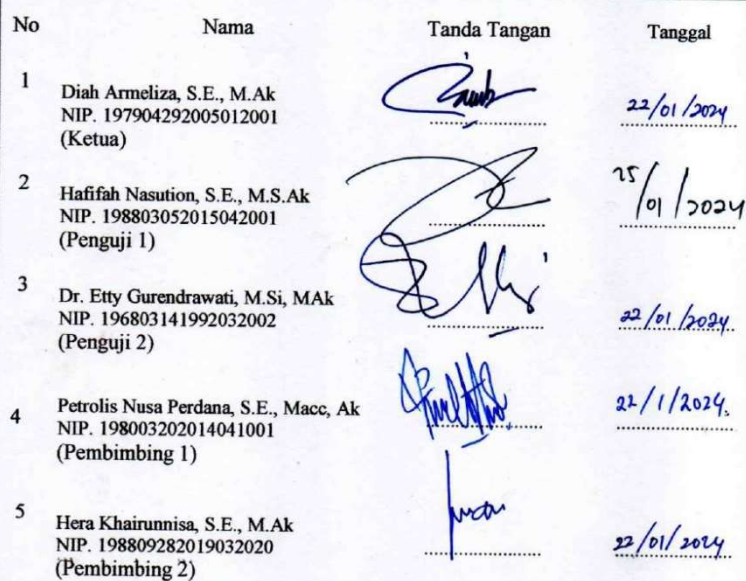 No Nama Tanda Tangan Tanggal
1
Diah Armeliza, S.E., M.Ak
NIP. 197904292005012001
(Ketua)
22/01/2024
2
Hafifah Nasution, S.E., M.S.Ak
NIP. 198803052015042001
(Penguji 1)
25/01/2024
3
Dr. Etty Gurendrawati, M.Si, MAk
NIP. 196803141992032002
(Penguji 2)
22/01/2024
4
Petrolis Nusa Perdana, S.E., Macc, Ak
NIP. 198003202014041001
(Pembimbing 1)
22/1/2024.
5
Hera Khairunnisa, S.E., M.Ak
NIP. 198809282019032020
(Pembimbing 2)
22/01/2024